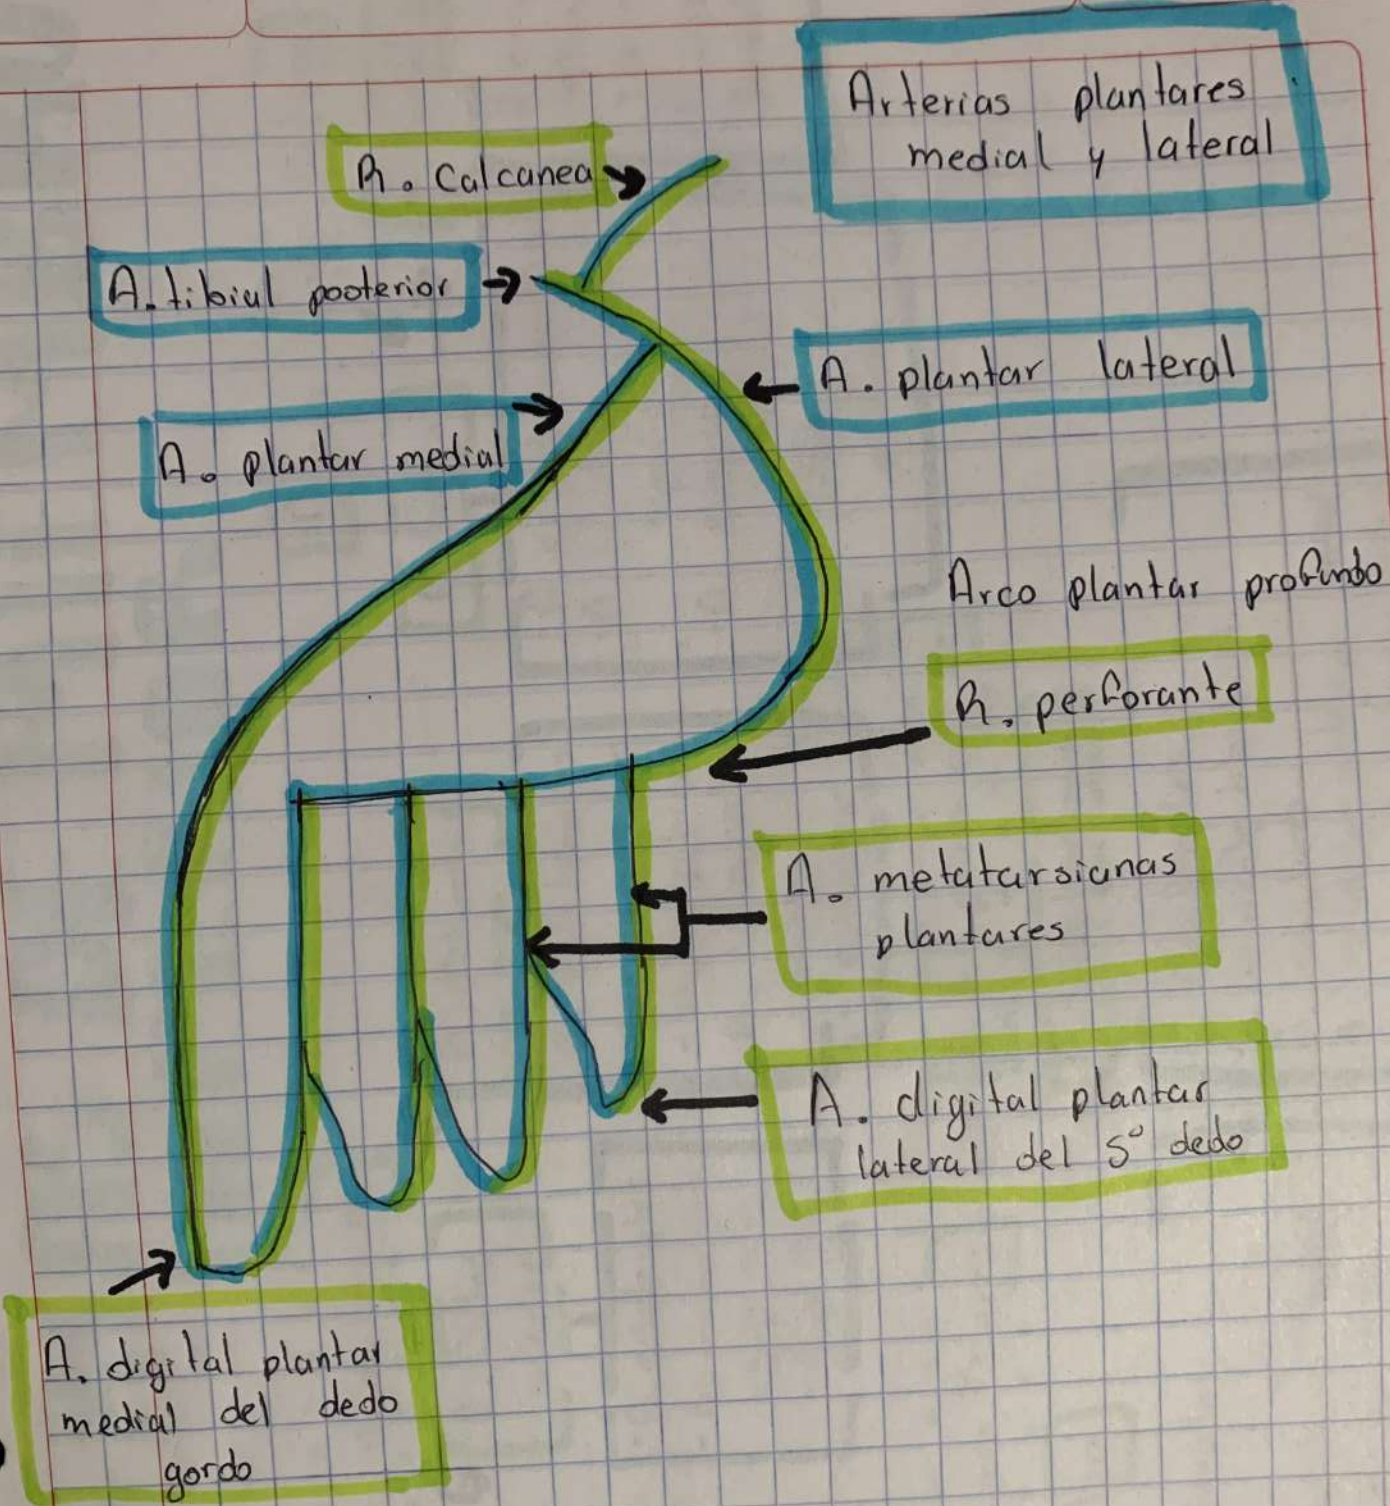 Arterias plantares
medial y lateral
R. Calcanea
A. tibial posterior
A. plantar lateral
A. plantar medial
Arco plantar profundo
R. perforante
A. metatarsianas
plantares
A. digital plantar
lateral del 5º dedo
A. digital plantar
medial del dedo
gordo